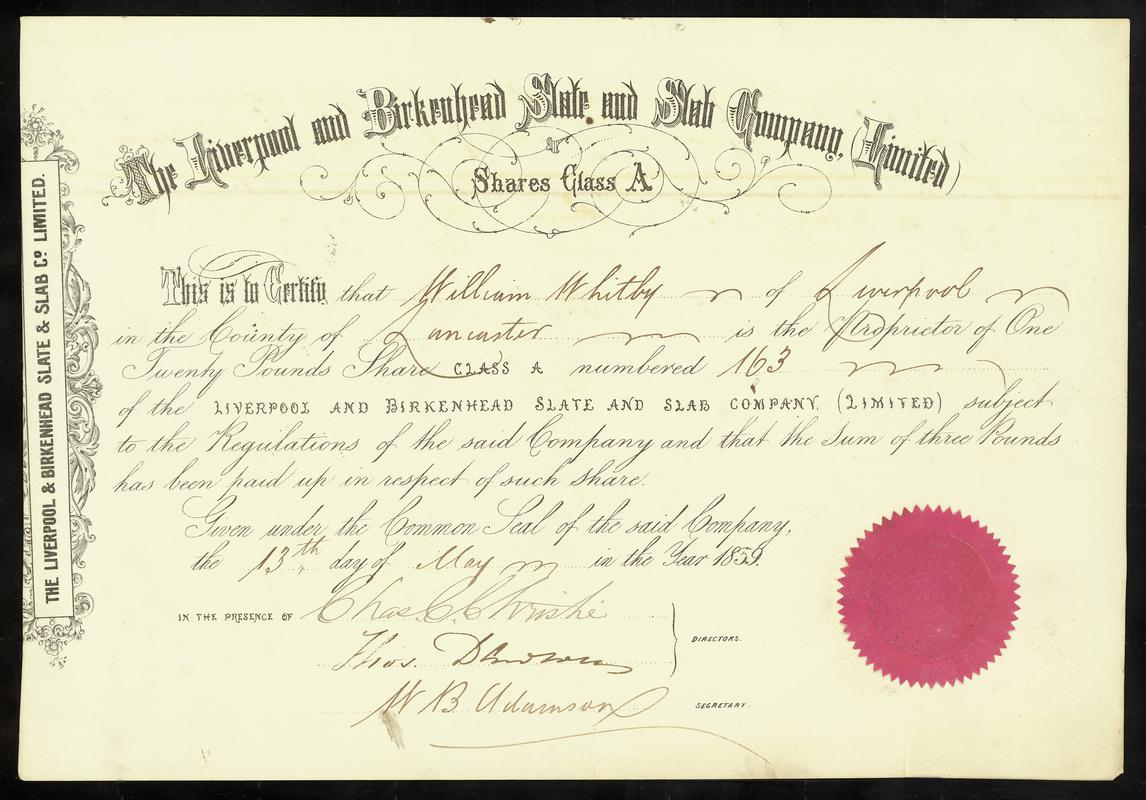 The Liverpool and Birkenhead Slate and Slab Company, (Limited)
Shares Class A
THE LIVERPOOL & BIRKENHEAD SLATE & SLAB Co. LIMITED.
This is to Certify that William Whitby of Liverpool
in the County of Lancaster is the Proprietor of One
Twenty Pounds Share CLASS A numbered 163
of the LIVERPOOL AND BIRKENHEAD SLATE AND SLAB COMPANY, (LIMITED) subject
to the Regulations of the said Company and that the Sum of three Pounds
has been paid up in respect of such Share.
Given under the Common Seal of the said Company,
the 13th day of May in the Year 1859.
IN THE PRESENCE OF Chas. C. Christie
Thos. DIRECTORS.
W B Adamson SECRETARY.